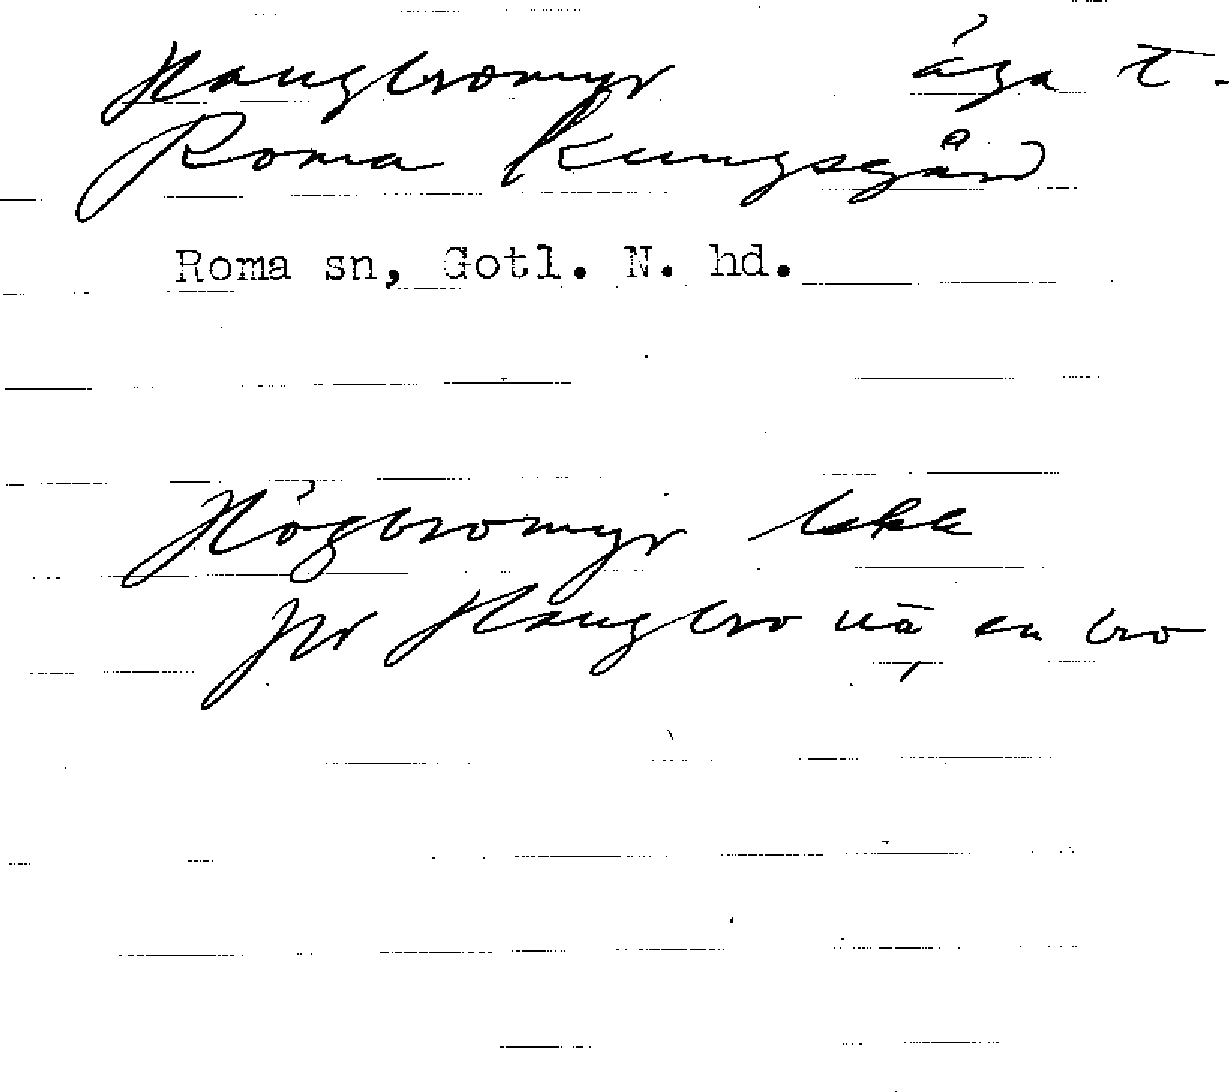 Haugbromyr åga t.
Roma Kungsgård
Roma sn, Gotl. N. hd.
Högbromyr
jfr Haugbro en bro